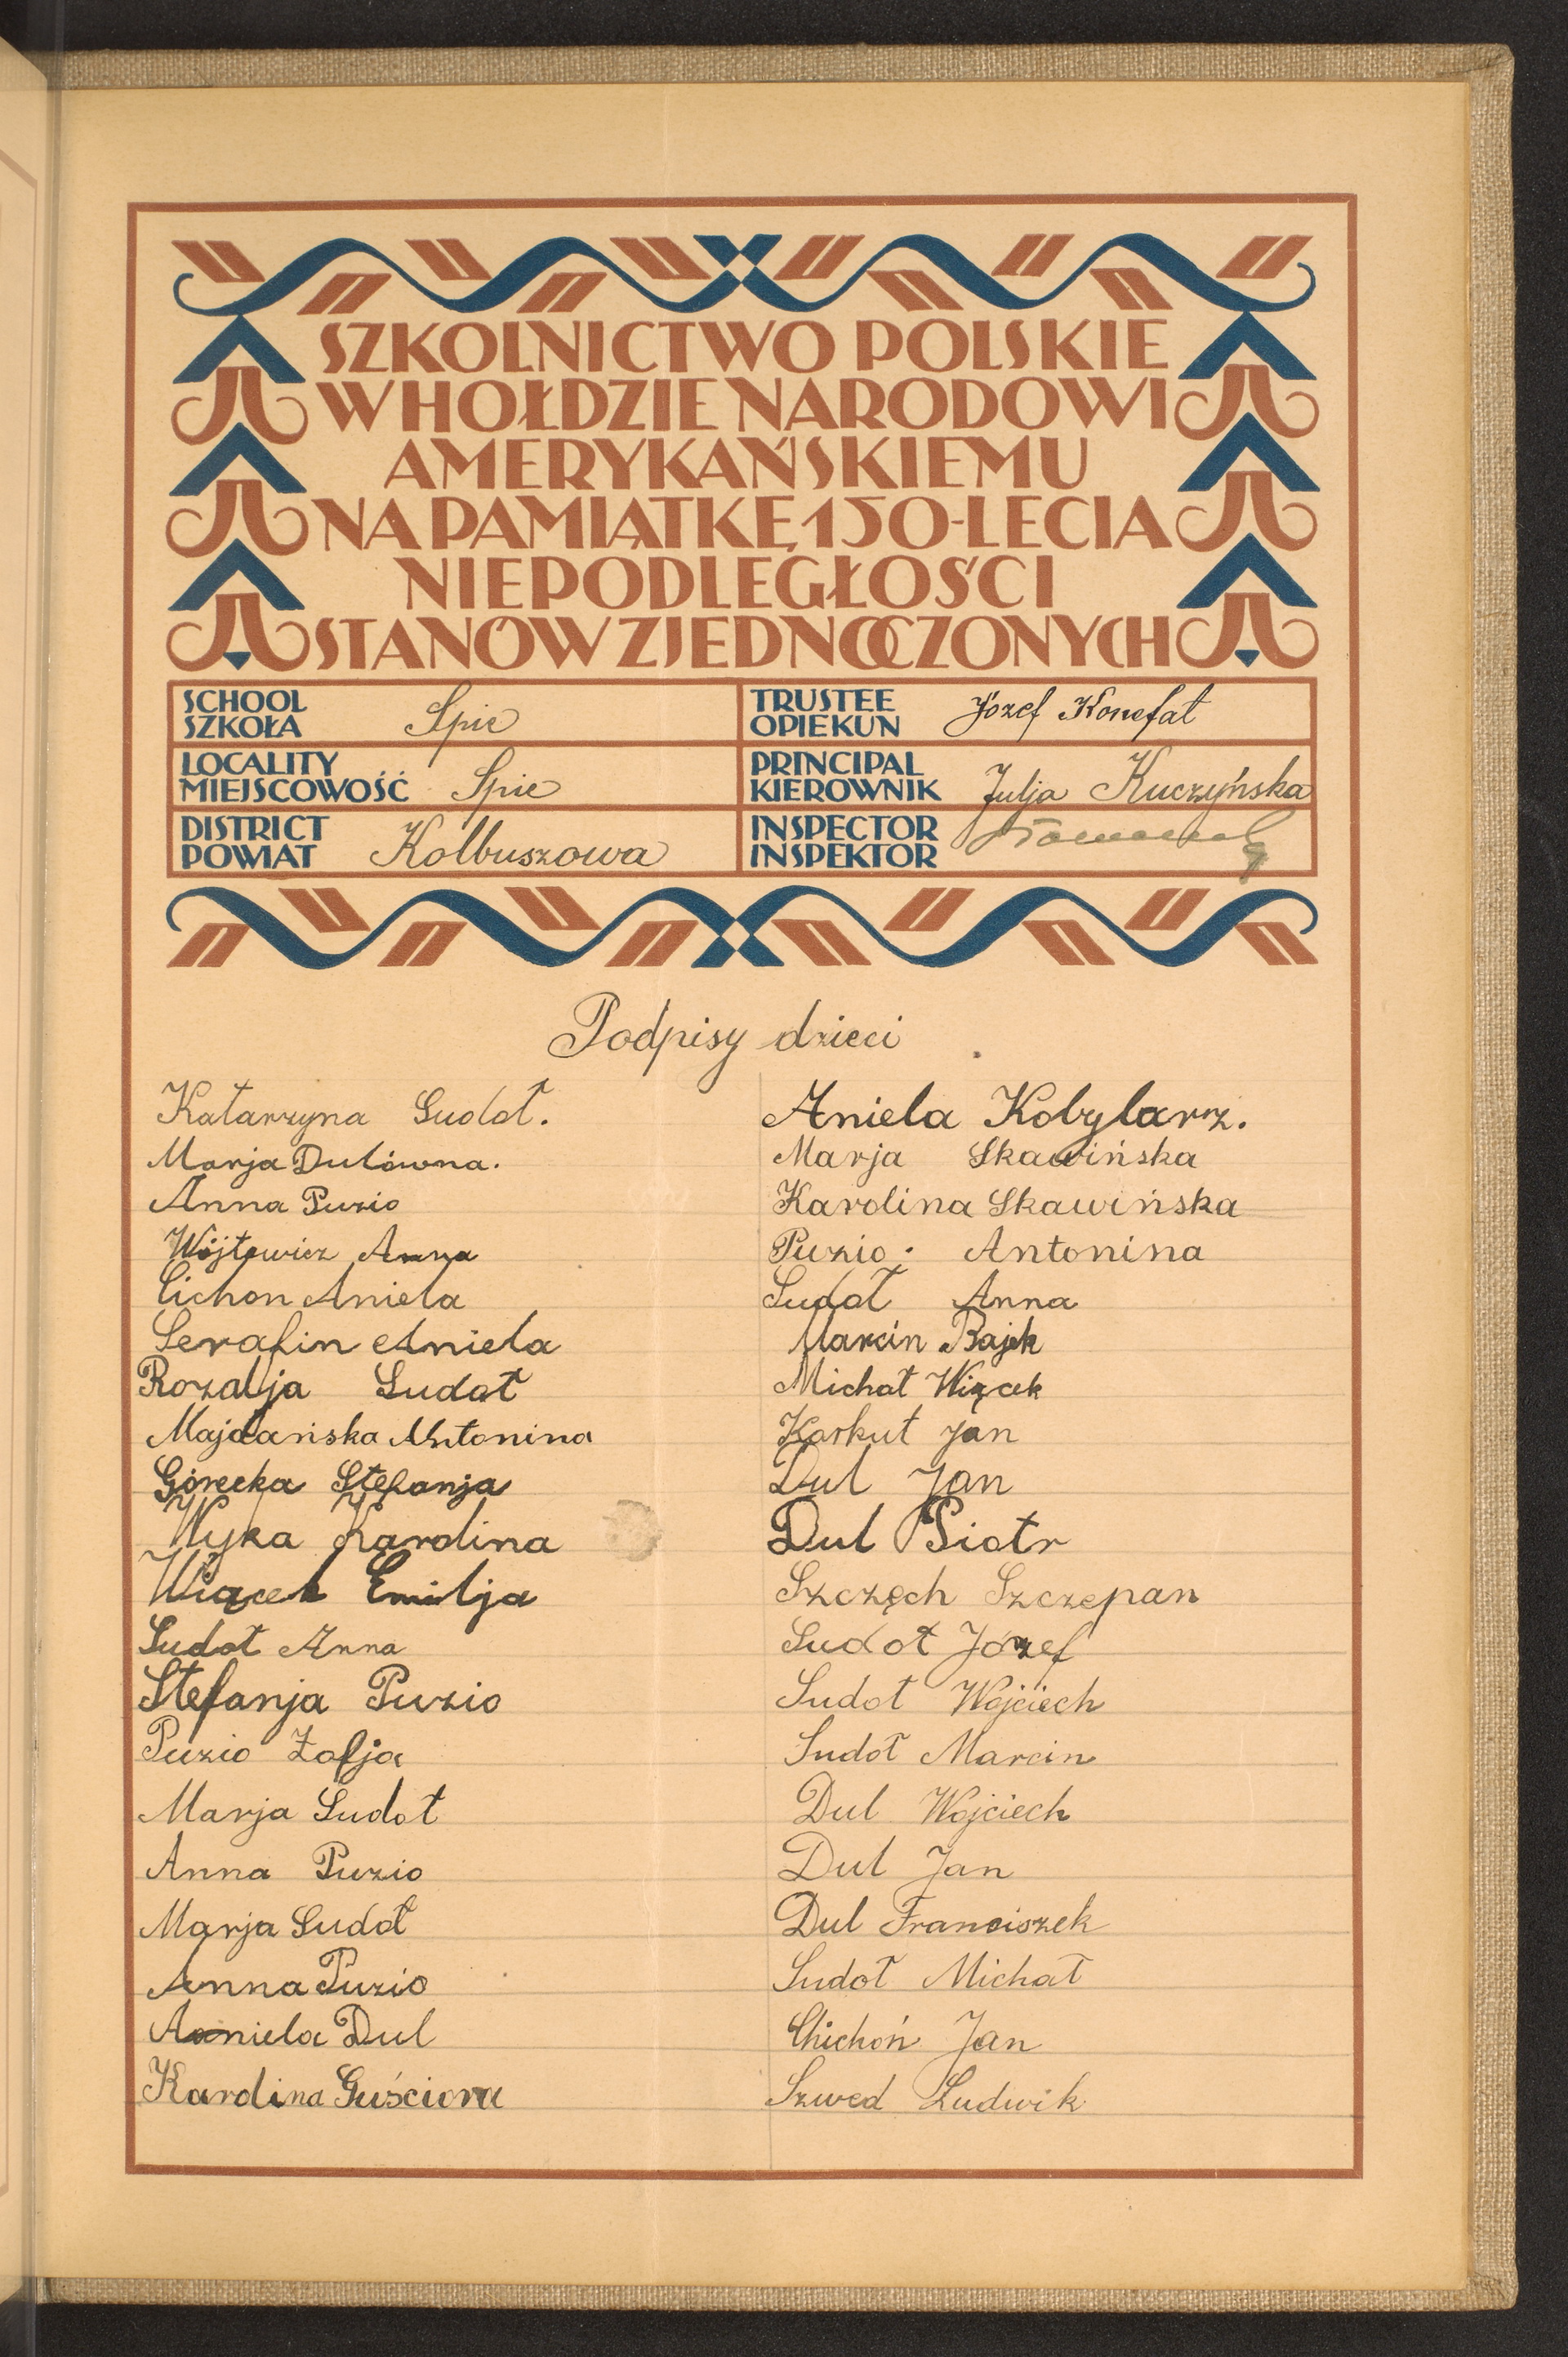 SZKOLNICTWO POLSKIE
W HOŁDZIE NARODOWI
AMERYKAŃSKIEMU
NA PAMIĄTKĘ 150-LECIA
NIEPODLEGŁOŚCI
STANÓW ZJEDNOCZONYCH
SCHOOL
SZKOŁA Spie
TRUSTEE
OPIEKUN Józef Konefał
LOCALITY
MIEJSCOWOŚĆ Spie
PRINCIPAL
KIEROWNIK Julja Kuczyńska
DISTRICT
POWIAT Kolbuszowa
INSPECTOR
INSPEKTOR
Podpisy dzieci
Katarzyna Sudoł.
Marja Dulówna.
Anna Puzio
Wójtowicz Anna
Cichon Aniela
Serafin Aniela
Rozalja Sudoł
Majdańska Antonina
Górecka Stefanja
Wyka Karolina
Wiącek Emilja
Sudoł Anna
Stefanja Puzio
Puzio Zofja
Marja Sudoł
Anna Puzio
Marja Sudoł
Anna Puzio
Aniela Dul
Karolina Guściora
Aniela Kobylarz.
Marja Skawińska
Karolina Skawińska
Puzio. Antonina
Sudoł Anna
Marcin Bajek
Michał Wiącek
Karkut Jan
Dul Jan
Dul Piotr
Szczęch Szczepan
Sudoł Józef
Sudoł Wojciech
Sudoł Marcin
Dul Wojciech
Dul Jan
Dul Franciszek
Sudoł Michał
Chichoń Jan
Szwed Ludwik